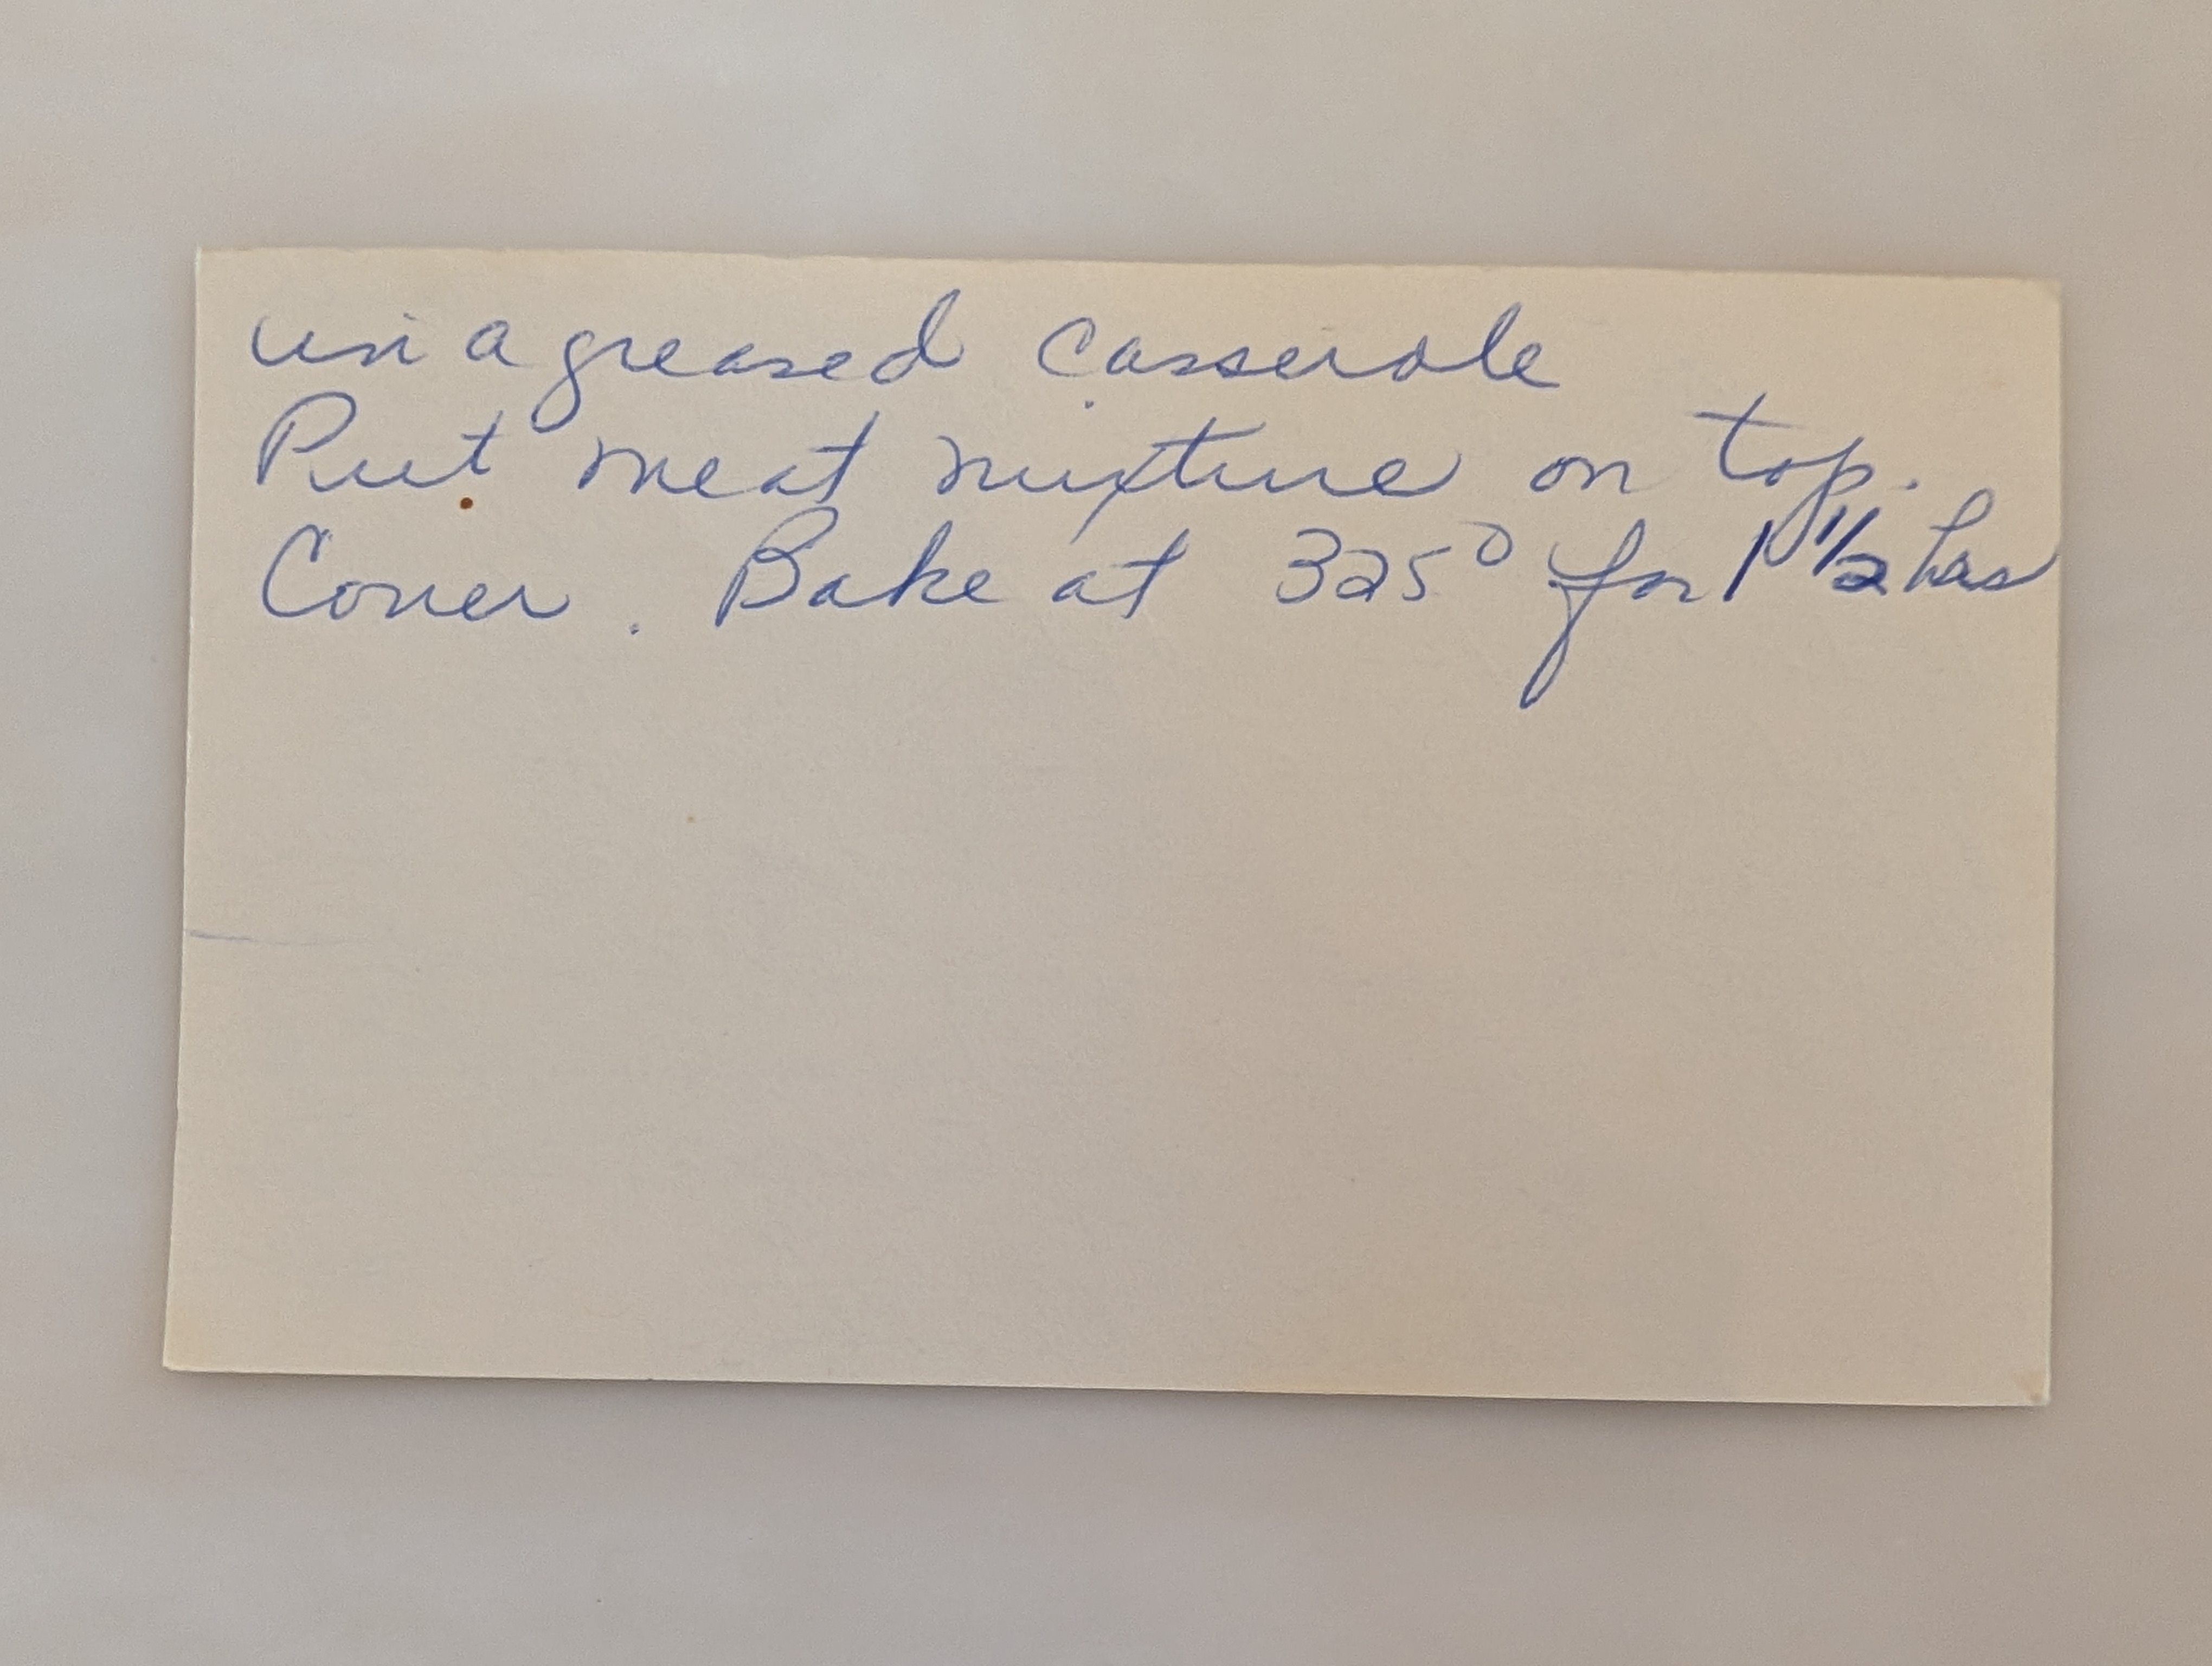 in a greased casserole
Put meat mixture on top.
Cover. Bake at 325° for 1 1/2 hrs